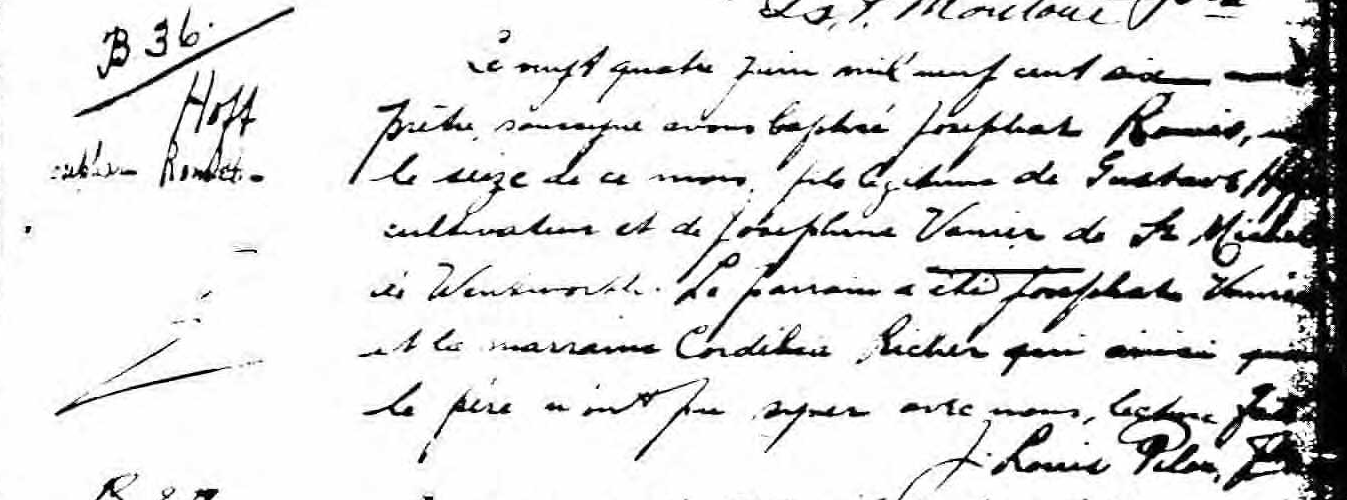 B 36.
Hoff
Le vingt quatre juin mil neuf cent six
prêtre soussigné avons baptisé Josephat
le seize de ce mois, fils légitime de Gustave
cultivateur et de Josephine Vanier de St Michel
de Wentworth. Le parrain a été Josephat Vanier
et la marraine Cordélia Richer qui ainsi que
le père n'ont pu signer avec nous, lecture faite
J. Louis Pilon, Ptre